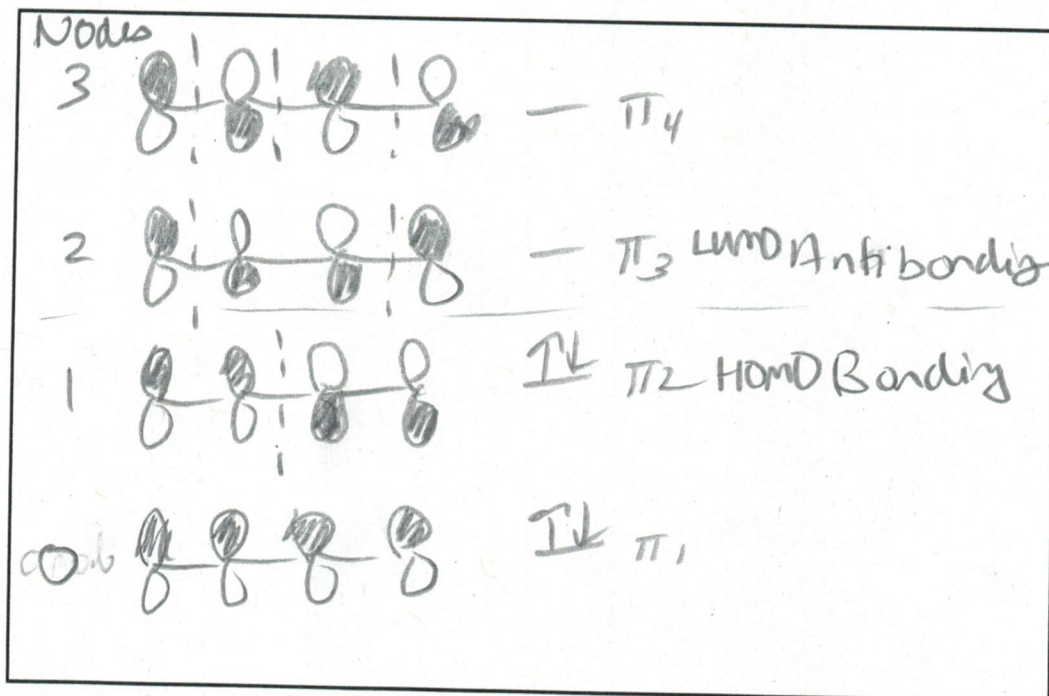 Nodes
3 π4
2 π3 LUMO Antibonding
1 π2 HOMO Bonding
0 π1